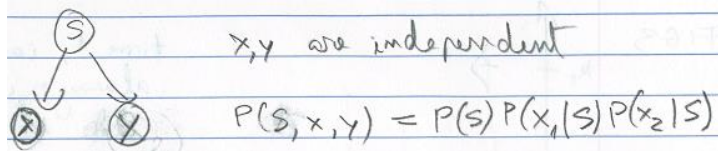 S
x,y are independent
X Y
P(S,x,y) = P(S)P(x₁|S)P(x₂|S)